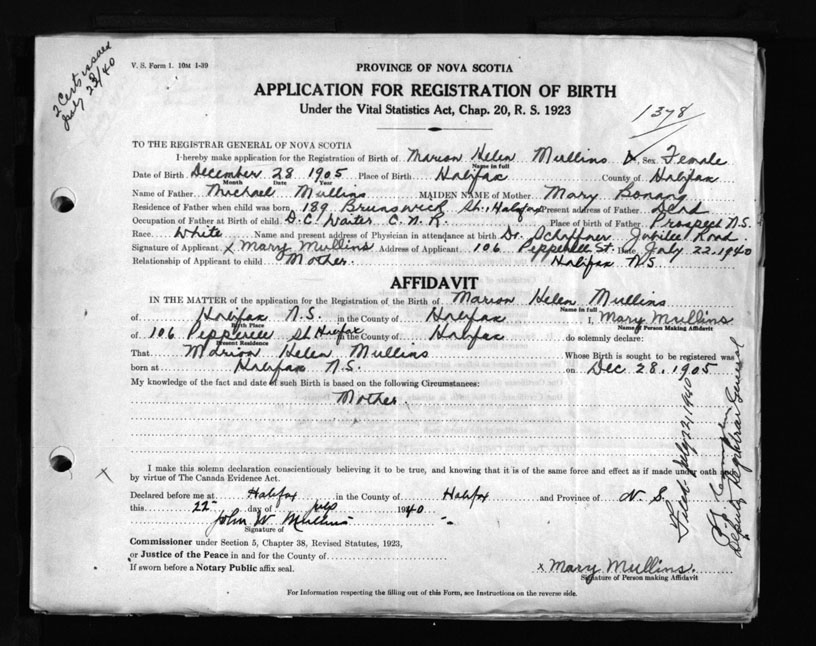 2 Certs issued
July 23/40
V. S. Form 1. 10M 1-39
PROVINCE OF NOVA SCOTIA
APPLICATION FOR REGISTRATION OF BIRTH
Under the Vital Statistics Act, Chap. 20, R. S. 1923
1378
TO THE REGISTRAR GENERAL OF NOVA SCOTIA
I hereby make application for the Registration of Birth of Marion Helen Mullins Sex Female
Name in full
Date of Birth December 28 1905 Place of Birth Halifax County of Halifax
Month Date Year
Name of Father Michael Mullins MAIDEN NAME of Mother Mary Bonang
Residence of Father when child was born 189 Brunswick St., Halifax Present address of Father Dead
Occupation of Father at Birth of child D.C. Waiter C.N.R. Place of birth of Father Prospect N.S.
Race White Name and present address of Physician in attendance at birth Dr. Schaffner Jubilee Road.
Signature of Applicant x Mary Mullins Address of Applicant 106 Pepperell St. Date July 22, 1940
Relationship of Applicant to child Mother. Halifax N.S.
AFFIDAVIT
IN THE MATTER of the application for the Registration of the Birth of Marion Helen Mullins
Name in full
of Halifax N.S. in the County of Halifax I, Mary Mullins
Birth Place Name of Person Making Affidavit
of 106 Pepperell St Halifax in the County of Halifax do solemnly declare:
Present Residence
That Marion Helen Mullins Whose Birth is sought to be registered was
born at Halifax N.S. on Dec 28, 1905
My knowledge of the fact and date of such Birth is based on the following Circumstances:
Mother.
I make this solemn declaration conscientiously believing it to be true, and knowing that it is of the same force and effect as if made under oath and
x by virtue of The Canada Evidence Act.
Declared before me at Halifax in the County of Halifax and Province of N. S.
this 22 day of July 1940
John W. Mullins
Signature of
Commissioner under Section 5, Chapter 38, Revised Statutes, 1923,
or Justice of the Peace in and for the County of
If sworn before a Notary Public affix seal.
x Mary Mullins.
Signature of Person making Affidavit
For Information respecting the filling out of this Form, see Instructions on the reverse side.
Filed July 22, 1940
Deputy Registrar General